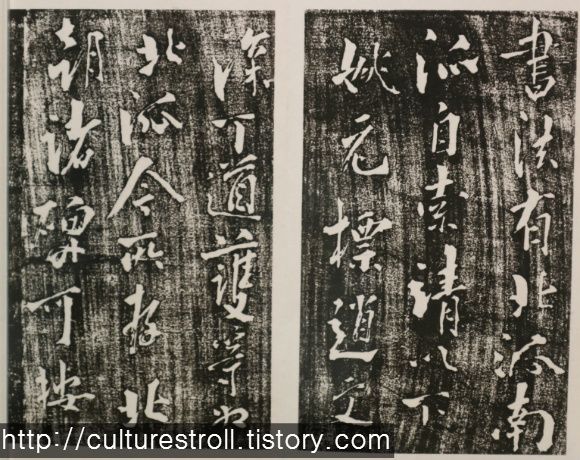 書法有北派南
派自索靖以下
姚元標趙文
深丁道護等為
北派今所存北
朝諸碑可按
http://culturestroll.tistory.com